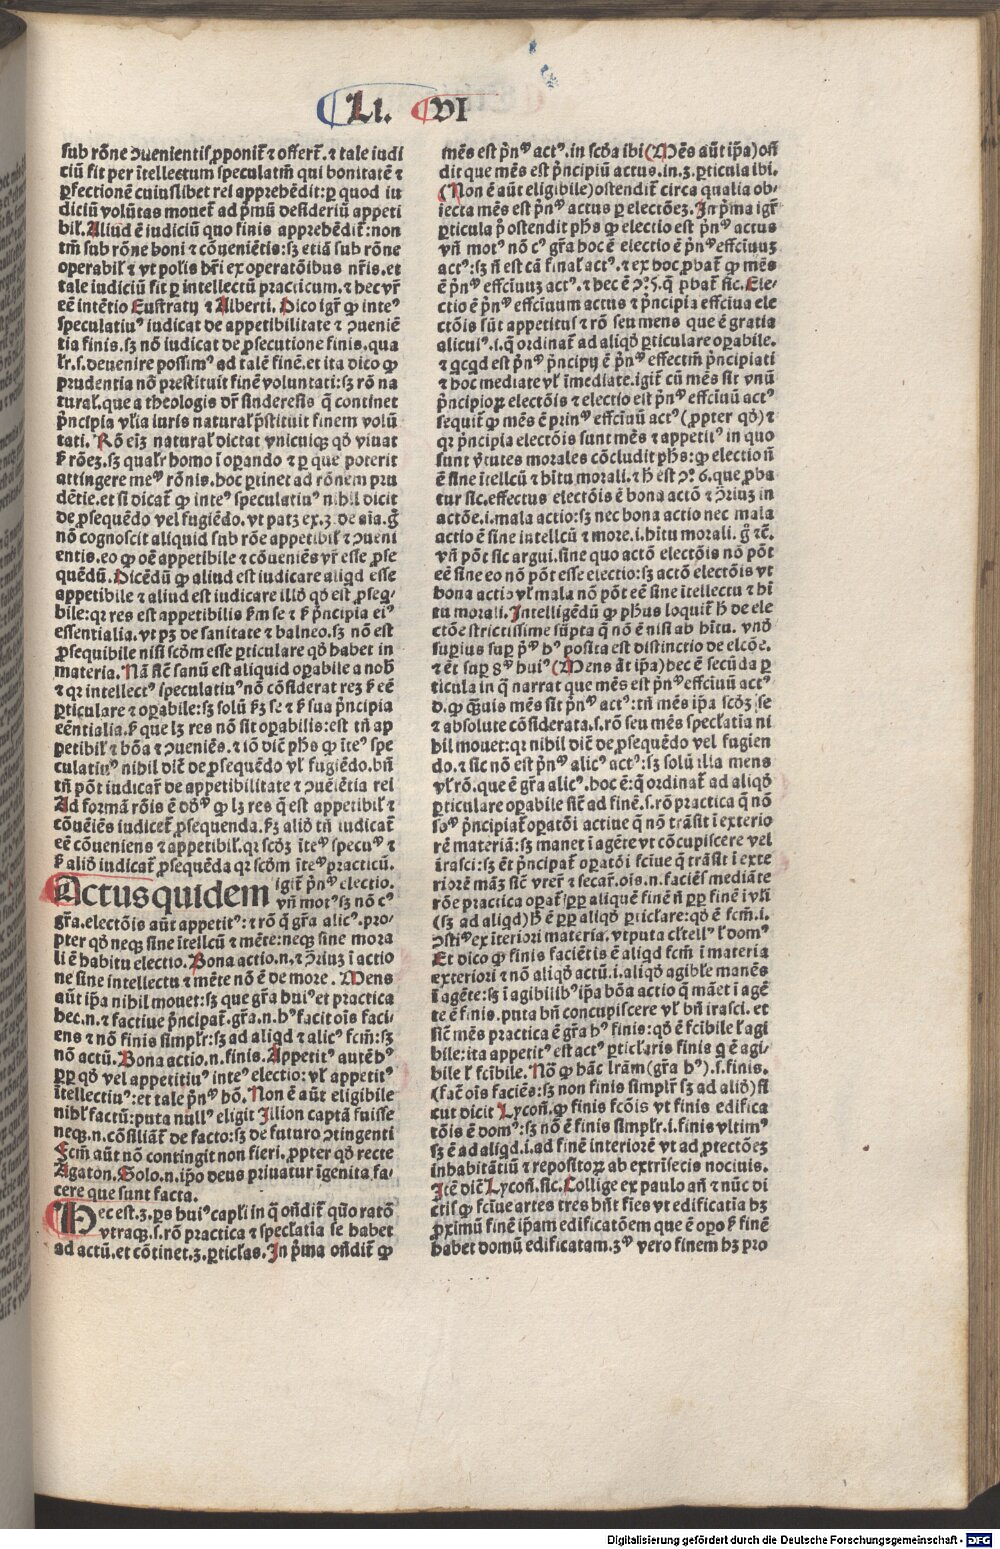 Li. VI
sub rōne ꝯuenientis ꝓponit᷑ ⁊ offert᷑. ⁊ tale iudi
ciū fit per ītellectum speculatm̄ qui bonitatē ⁊
ꝑfectionē cuiuslibet rei apprehēdit: ꝑ quod iu
diciū volūtas mouet᷑ ad pͥmū desideriū appeti
bil᷑. Aliud ē iudiciū quo finis apprehēdit᷑: non
tm̄ sub rōne boni ⁊ cōueniētis: sꝫ etiā sub rōne
operabil᷑ ⁊ vt polis hr̄i ex operatōibus nr̄is. et
tale iudiciū fit ꝑ intellectū practicum. ⁊ hec vr̄
eē intētio Eustratij ⁊ Alberti. Dico igr̄ ꝙ inteꝰ
speculatiuꝰ iudicat de appetibilitate ⁊ ꝯueniē
tia finis. sꝫ nō iudicat de prosecutione finis. qua
lr̄. s. deuenire possimꝰ ad talē finē. et ita dico ꝙ
prudentia nō prestituit finē voluntati: sꝫ rō na
tural᷑. que a theologis dr̄ sinderesis q̄ continet
pͥncipia vl̄ia iuris natural᷑ p̄stituit finem volū
tati. Rō eīꝫ natural᷑ dictat vnicuiqꝫ qd̄ viuat
ẜm rōeꝫ. sꝫ qualr̄ homo ī oꝑando ⁊ ꝑ que poterit
attingere meꝰ rōnis. hoc ꝑtinet ad rōnem pru
dētie. et si dicat᷑ ꝙ inteꝰ speculatiuꝰ nihil dicit
de ꝓsequēdo vel fugiēdo. vt patꝫ ex. 3. de aīa. gͦ
nō cognoscit aliquid sub rōe appetibil᷑ ⁊ ꝯueni
entis. eo ꝙ oē appetibile ⁊ cōueniēs vr̄ esse ꝓse
quēdū. Dicēdū ꝙ aliud est iudicare aliqd esse
appetibile ⁊ aliud est iudicare illd̄ qd̄ est ꝓseq
bile: qr res est appetibilis ẜm se ⁊ ẜm pͥncipia eiꝰ
essentialia. vt pꝫ de sanitate ⁊ balneo. sꝫ nō est
ꝓsequibile nisi scd̄m esse ꝑticulare qd̄ habet in
materia. Nā sic̄ sanū est aliquid oꝑabile a nob̄
⁊ qr intellectꝰ speculatiuꝰ nō cōsiderat reꝫ ẜm eē
ꝑticulare ⁊ oꝑabile: sꝫ solū ẜm se ⁊ ẜm sua pͥncipia
eēntialia. ẜm que lꝫ res nō sit oꝑabilis: est tn̄ ap
petibil᷑ ⁊ bōa ⁊ ꝯueniēs. ⁊ iō dic̄ phs ꝙ īteꝰ spe
culatiuꝰ nihil dic̄ de ꝓsequēdo vl᷑ fugiēdo. bn̄
tn̄ pōt iudicar̄ de appetibilitate ⁊ ꝯueiētia rei
Ad formā rōis ē ꝙ lꝫ res q̄ est appetibil᷑ ⁊
cōueiēs iudicet᷑ ꝓsequenda. aliō tn̄ iudicat᷑
eē cōueniens ⁊ appetibil᷑. qr scd̄ꝫ īteꝰ specuꝰ ⁊
aliō iudicat᷑ ꝓsequēda qr scd̄m īteꝰ practicū.
Actus quidem igit᷑ pͥnꝰ electio.
vn̄ motꝰ sꝫ nō cꝰ
gr̄a. electōis aūt appetitꝰ: ⁊ rō q̄ gr̄a alicꝰ. pro
pter qd̄ neqꝫ sine ītellcū ⁊ mēte: neqꝫ sine mora
li ē habitu electio. Bona actio. n. ⁊ ꝯͥriuꝫ ī actio
ne sine intellectu ⁊ mēte nō ē de more. Mens
aūt ip̄a nihil mouet: sꝫ que gr̄a huiꝰ et practica
hec. n. ⁊ factiue pͥncipat᷑. gr̄a. n. hꝰ facit oīs faci
ens ⁊ nō finis simplr̄: sꝫ ad aliqd ⁊ alicꝰ fcm̄: sꝫ
nō actū. Bona actio. n. finis. Appetitꝰ autē hꝰ
ꝓꝑ qd̄ vel appetitiuꝰ inteꝰ electio: vl᷑ appetitꝰ
ītellectiuꝰ: et tale pͥnꝰ hō. Non ē aūt eligibile
nihl᷑ factū: puta nullꝰ eligit Ilion captā fuisse
neqꝫ. n. cōsiliat᷑ de facto: sꝫ de futuro ꝯtingenti
Fcm̄ aūt nō contingit non fieri. ꝓpter qd̄ recte
Agaton. Solo. n. ip̄o deus priuatur īgenita fa
cere que sunt facta.
Hec est. 3. ps huiꝰ capl̄i in q̄ ōn̄dit᷑ quō ratō
vtraqꝫ. s. rō practica ⁊ specl̄atia se habet
ad actū. et cōtinet. 3. ꝑticl̄as. In pͥma ōn̄dit᷑ ꝙ
mēs est pͥnꝰ actꝰ. in scd̄a ibi (Mēs aūt ip̄a) ōn̄
dit que mēs est pͥncipiū actus. in. 3. ꝑticula ibi.
(Non ē aūt eligibile) ostendit᷑ circa qualia ob
iecta mēs est pͥnꝰ actus ꝑ electōeꝫ. In pͥma igr̄
ꝑticula pͥ ostendit phs ꝙ electio est pͥnꝰ actus
vn̄ motꝰ nō cꝰ gr̄a hoc ē electio ē pͥnꝰ effcīuuꝫ
actꝰ: sꝫ n̄ est cā final᷑ actꝰ. ⁊ ex hoc ꝓbat᷑ ꝙ mēs
ē pͥnꝰ effcīuuꝫ actꝰ. ⁊ hec ē ꝯͦ. 5. q̄ ꝓbat᷑ sic. Ele
ctio ē pͥnꝰ effcīuum actus ⁊ pͥncipia effciua ele
ctōis sūt appetitus ⁊ rō seu mens que ē gratia
alicuiꝰ. i. q̄ ordinat᷑ ad aliqd̄ ꝑticulare oꝑabile.
⁊ qcqd est pͥnꝰ pͥncipij ē pͥnꝰ effectm̄ pͥncipiati
⁊ hoc mediate vl᷑ īmediate. igit᷑ cū mēs sit vnū
pͥncipioꝝ electōis ⁊ electio est pͥnꝰ effcīuū actꝰ
sequit᷑ ꝙ mēs ē prinꝰ effcīuū actꝰ (ꝓpter qd̄) ⁊
qr pͥncipia electōis sunt mēs ⁊ appetitꝰ in quo
sunt v̄tutes morales cōcludit phs: ꝙ electio n̄
ē sine ītellcū ⁊ hītu morali. ⁊ h̄ est ꝯͦ 6. que ꝓba
tur sic. effectus electōis ē bona actō ⁊ ꝯͥriuꝫ in
actōe. i. mala actio: sꝫ nec bona actio nec mala
actio ē sine intellcū ⁊ more. i. hītu morali. gͦ ⁊c̄.
vn̄ pōt sic argui. sine quo actō electōis nō pōt
eē sine eo nō pōt esse electio: sꝫ actō electōis vt
bona actio vl᷑ mala nō pōt eē sine ītellectu ⁊ hī
tu morali. Intelligēdū ꝙ phus loquit᷑ h̄ de ele
ctōe strictissime sūpta q̄ nō ē nisi ab hītu. vn̄
suꝑius suꝑ pͥnꝰ hꝰ posita est distinctio de elcōe.
⁊ ēt suꝑ 8ꝰ huiꝰ (Mens āt ip̄a) hec ē secūda ꝑ
ticula in q̄ narrat que mēs est pͥnꝰ effcīuū actꝰ
d. ꝙ q̄uis mēs sit pͥnꝰ actꝰ: tn̄ mēs ip̄a scd̄ꝫ se
⁊ absolute cōsiderata. s. rō seu mēs specl̄atia ni
hil mouet: qr nihil dic̄ de ꝓsequēdo vel fugien
do. ⁊ sic nō est pͥnꝰ alicꝰ actꝰ: sꝫ solū illa mens
vl᷑ rō. que ē gr̄a alicꝰ. hoc ē: q̄ ordinat᷑ ad aliqd̄
ꝑticulare oꝑabile sic̄ ad finē. s. rō practica q̄ nō
soꝰ pͥncipiat᷑ oꝑatōi actiue q̄ nō trāsit ī exterio
rē materiā: sꝫ manet ī agēte vt cōcupiscere vel
īrasci: sꝫ ēt pͥncipat᷑ oꝑatōi fcīue q̄ trāsit ī exte
riorē māꝫ sic̄ vrer̄ ⁊ secar̄. oīs. n. faciēs mediāte
rōe practica oꝑat᷑ ꝓꝑ aliquē finē n̄ ꝓꝑ finē ī vl̄i
(sꝫ ad aliqd) h̄ ē ꝓꝑ aliqd̄ ꝑticlare: qd̄ ē fcm̄. i.
ꝯstiꝰ ex īteriori materia. vt puta cl̄tell᷑ l᷑ domꝰ
Et dico ꝙ finis faciētis ē aliqd fcm̄ ī materia
exteriori ⁊ nō aliqd̄ actū. i. aliqd̄ agibl᷑e manēs
ī agēte: sꝫ ī agibilibꝰ ip̄a bōa actio q̄ māet ī agē
te ē finis. puta bn̄ concupiscere vl᷑ bn̄ irasci. et
sic̄ mēs practica ē gr̄a hꝰ finis: qd̄ ē fcībile l᷑ agi
bile: ita appetitꝰ est actꝰ ꝑticl̄aris finis q ē agi
bile l᷑ fcībile. Nō ꝙ hāc lr̄am (gr̄a hꝰ). s. finis.
(fac̄ oīs faciēs: sꝫ non finis simplr̄ sꝫ ad aliō) si
cut dicit Lycoñ. ꝙ finis fcōis vt finis edifica
tōis ē domꝰ: sꝫ nō ē finis simplr̄. i. finis vltimꝰ
sꝫ ē ad aliqd. i. ad finē interiorē vt ad ꝓtectōeꝫ
inhabitātiū ⁊ repositoꝝ ab extrīsecis nociuis.
Itē dic̄ Lycoñ. sic. Collige ex paulo añ ⁊ nūc di
ctis ꝙ fcīue artes tres hn̄t fies vt edificatia hꝫ
ꝓximū finē ip̄am edificatōem que ē oꝑo ⁊ finē
habet domū edificatam. 3ꝰ vero finem hꝫ pro
Digitalisierung gefördert durch die Deutsche Forschungsgemeinschaft - DFG